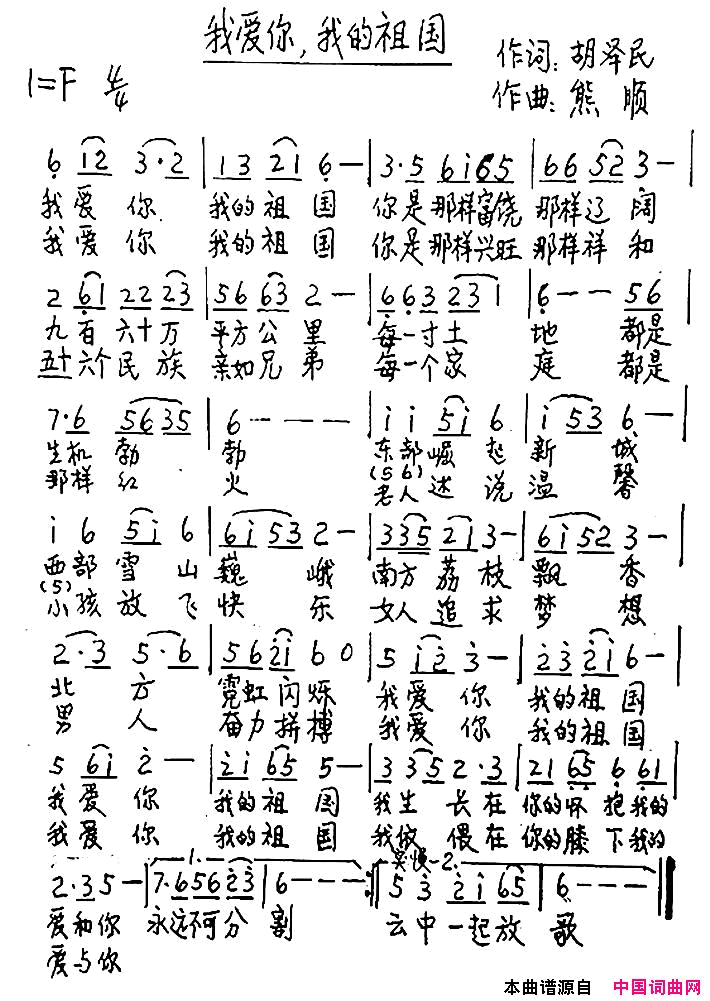 我爱你,我的祖国
作词:胡泽民
1=F 4/4
作曲:熊 顺
6 12 3·2 | 13 21 6 — | 3·5 6i65 | 66 52 3 — |
我爱 你 我的祖 国 你是那样富饶 那样辽 阔
我爱 你 我的祖 国 你是那样兴旺 那样祥 和
2 61 22 23 | 56 63 2 — | 663 231 | 6 — — 56 |
九百六十万 平方公 里 每一寸土 地 都是
五十六个民族 亲如兄 弟 每一个家 庭 都是
7·6 5635 | 6 — — — | i i 5i 6 | i 53 6 — |
生机 勃 勃 东部崛 起 新 城
(56)
那样 红 火 老人述 说 温 馨
i 6 5i 6 | 6i53 2 — | 335 2i 3 — | 6i52 3 — |
西部雪 山 巍 峨 南方荔枝 飘 香
(5)
小孩放 飞 快 乐 女人追 求 梦 想
2·3 5·6 | 56 2i 6 0 | 5 i2 3 — | 23 2i 6 — |
北 方 霓虹闪 烁 我爱 你 我的祖 国
男 人 奋力拼 搏 我爱 你 我的祖 国
5 6i 2 — | 2i 65 5 — | 3 35 2·3 | 21 65 6 61 |
我爱 你 我的祖 国 我生 长在 你的怀 抱我的
我爱 你 我的祖 国 我依 偎在 你的膝 下我的
1. 2.
2·35 — | 7·656 23 | 6 — — — :‖ 5 3 2i 65 | 6 — — — ‖
爱和你 永远不可分 割 云中一起放 歌
爱与你
本曲谱源自 中国词曲网